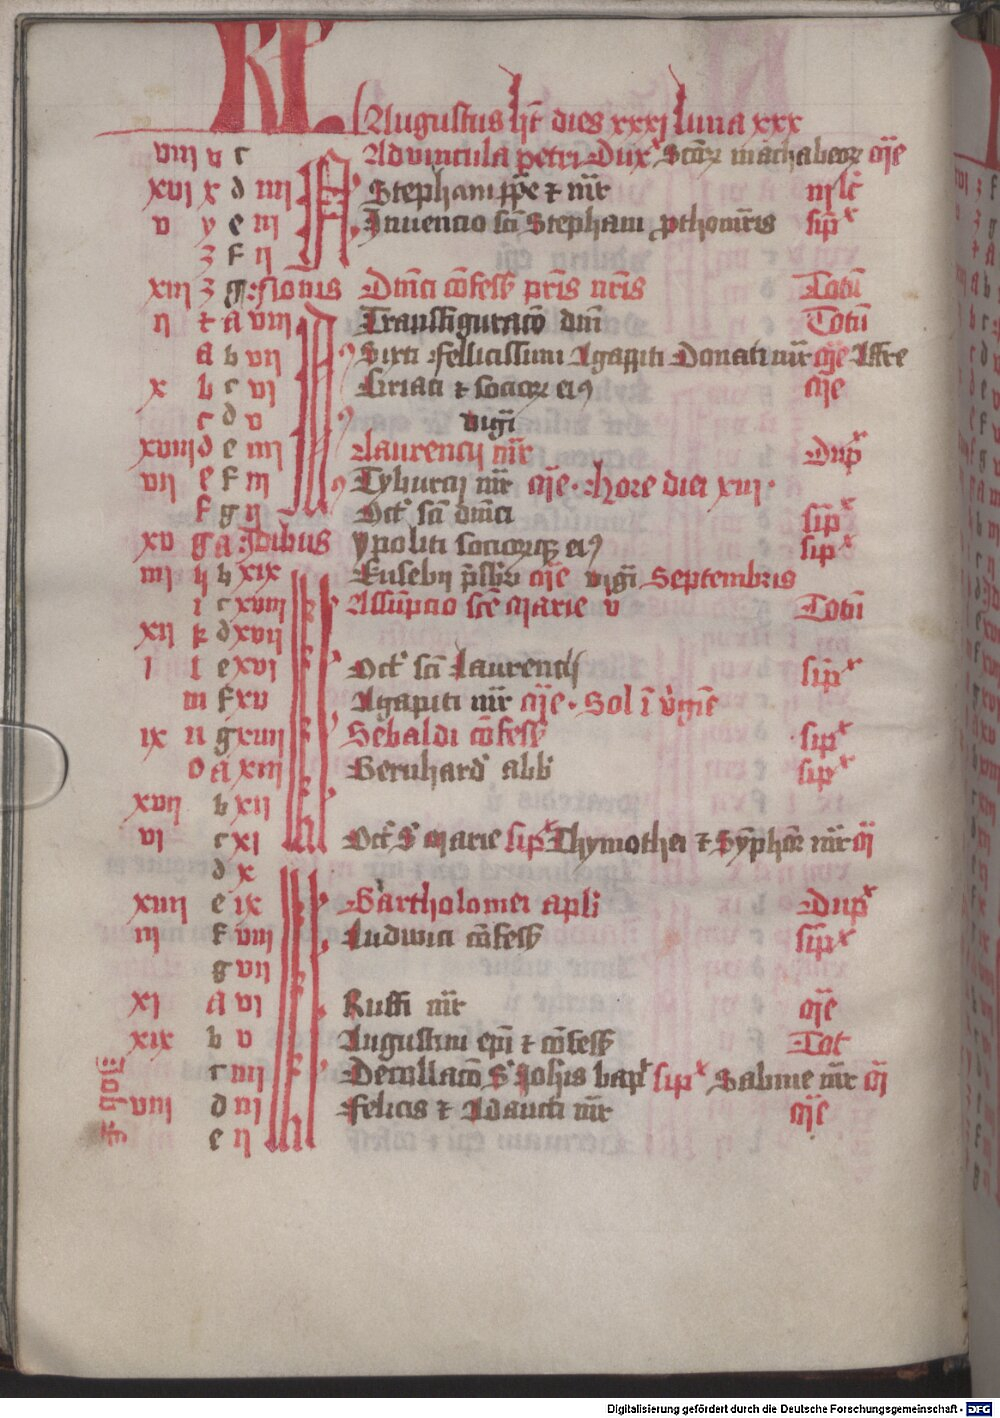 KL
Augustus ht dies xxxi luna xxx
viii v c Advincula petri Dux Scōrum machabeorum
xvi x d iiii Stephani ppe et mr iii lc
v y e iii Invencio sci Stephani prthomris sipx
z f ii
xiii z g Nonis Dnici cōfess pris nris Totū
ii t a viii Transfiguracō dni Totū
a b vii Sixti fellicissimi Agappiti Donati mr Affre
x b c vi Ciriaci et socior ei9
c d v vigi
xviii d e iiii Laurencii mr Dupx
vii e f iii Tyburcii mr Hore diei xiii
f g ii Oct sci dnici sipx
xv g a Idibus ypoliti sociorq ei9 sipx
iiii h b xix Eusebii prsbri vigi Septembris
i c xviii Assūpcio scē Marie v Totū
xii k d xvii
i l e xvi Oct sci Laurencii sipx
m f xv Agapiti mr Sol ī virgīe
ix n g xiiii Sebaldi cōfess sipx
o a xiii Bernhard abb sipx
xvii b xii
vi c xi Oct S Marie sipx Thymothei et Symphor mr
d x
xiiii e ix Bartholomei apli Dupx
iii f viii Ludwici cōfess sipx
g vii
xi a vi Ruffi mr
xix b v Augustini epi et cōfess Tot
c iiii Decollacō S Johis bapt sipx Sabine mr
viii d iii Felicis et Adaucti mr
e ii
Digitalisierung gefördert durch die Deutsche Forschungsgemeinschaft - DFG